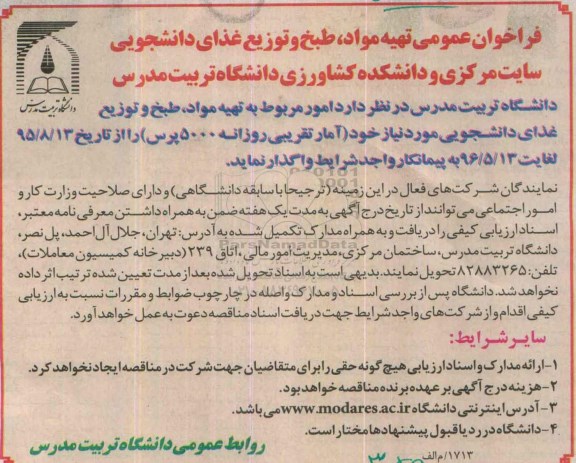 فراخوان عمومی تهیه مواد، طبخ و توزیع غذای دانشجویی
سایت مرکزی و دانشکده کشاورزی دانشگاه تربیت مدرس
دانشگاه تربیت مدرس
دانشگاه تربیت مدرس در نظر دارد امور مربوط به تهیه مواد، طبخ و توزیع
غذای دانشجویی مورد نیاز خود (آمار تقریبی روزانه ۵۰۰۰ پرس) را از تاریخ ۹۵/۸/۱۳
لغایت ۹۶/۵/۱۳ به پیمانکار واجد شرایط واگذار نماید.
نمایندگان شرکت‌های فعال در این زمینه (ترجیحا با سابقه دانشگاهی) و دارای صلاحیت وزارت کار و
امور اجتماعی می‌توانند از تاریخ درج آگهی به مدت یک هفته ضمن به همراه داشتن معرفی نامه معتبر،
اسناد ارزیابی کیفی را دریافت و به همراه مدارک تکمیل شده به آدرس: تهران، جلال آل احمد، پل نصر،
دانشگاه تربیت مدرس، ساختمان مرکزی، مدیریت امور مالی، اتاق ۲۳۹ (دبیرخانه کمیسیون معاملات)،
تلفن: ۸۲۸۸۳۲۶۵ تحویل نمایند. بدیهی است به اسناد تحویل شده بعد از مدت تعیین شده ترتیب اثر داده
نخواهد شد. دانشگاه پس از بررسی اسناد و مدارک واصله در چارچوب ضوابط و مقررات نسبت به ارزیابی
کیفی اقدام و از شرکت‌های واجد شرایط جهت دریافت اسناد مناقصه دعوت به عمل خواهد آورد.
سایر شرایط:
۱-ارائه مدارک و اسناد ارزیابی هیچ گونه حقی را برای متقاضیان جهت شرکت در مناقصه ایجاد نخواهد کرد.
۲-هزینه درج آگهی بر عهده برنده مناقصه خواهد بود.
۳-آدرس اینترنتی دانشگاه www.modares.ac.ir می باشد.
۴-دانشگاه در رد یا قبول پیشنهادها مختار است.
۱۷۱۳/م الف
روابط عمومی دانشگاه تربیت مدرس
ParsNamadData